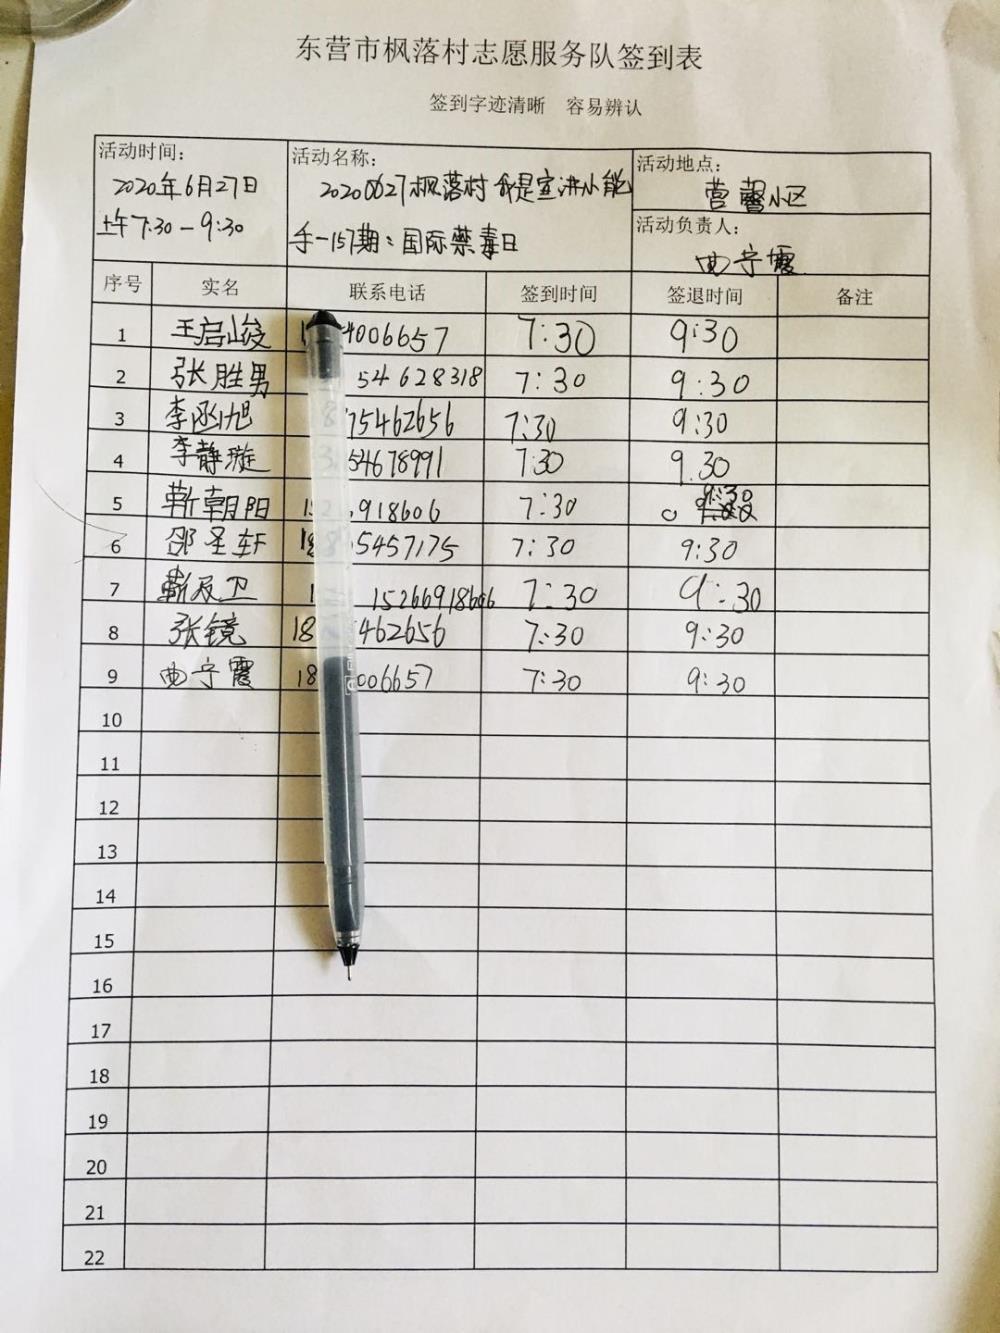 东营市枫落村志愿服务队签到表
签到字迹清晰 容易辨认
活动时间:
2020年6月27日
上午7:30-9:30
活动名称:
20200627枫落村 我是宣讲小能
手-157期:国际禁毒日
活动地点:
营馨小区
活动负责人:
曲宁霞
序号 实名 联系电话 签到时间 签退时间 备注
1 王启峻 4006657 7:30 9:30
2 张胜男 54628318 7:30 9:30
3 李函旭 75462656 7:30 9:30
4 李静漩 54678991 7:30 9.30
5 靳朝阳 918606 7:30 9:30
6 邵圣轩 5457175 7:30 9:30
7 靳及卫 15266918606 7:30 9:30
8 张镜 18 462656 7:30 9:30
9 曲宁霞 18 006657 7:30 9:30
10
11
12
13
14
15
16
17
18
19
20
21
22